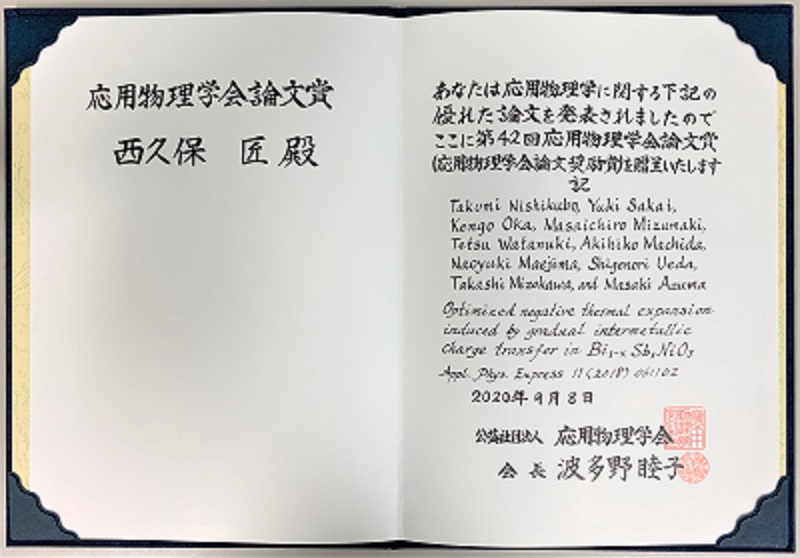 応用物理学会論文賞
西久保 匠 殿
あなたは応用物理学に関する下記の
優れた論文を発表されましたので
ここに第42回応用物理学会論文賞
(応用物理学会論文奨励賞)を贈呈いたします
記
Takumi Nishikubo, Yuki Sakai,
Kengo Oka, Masaichiro Mizumaki,
Tetsu Watanuki, Akihiko Machida,
Naoyuki Maejima, Shigenori Ueda,
Takashi Mizokawa, and Masaki Azuma
Optimized negative thermal expansion
induced by gradual intermetallic
charge transfer in Bi₁₋ₓSbₓNiO₃
Appl. Phys. Express 11 (2018) 061102
2020年9月8日
公益社団法人 応用物理学会
会長 波多野睦子